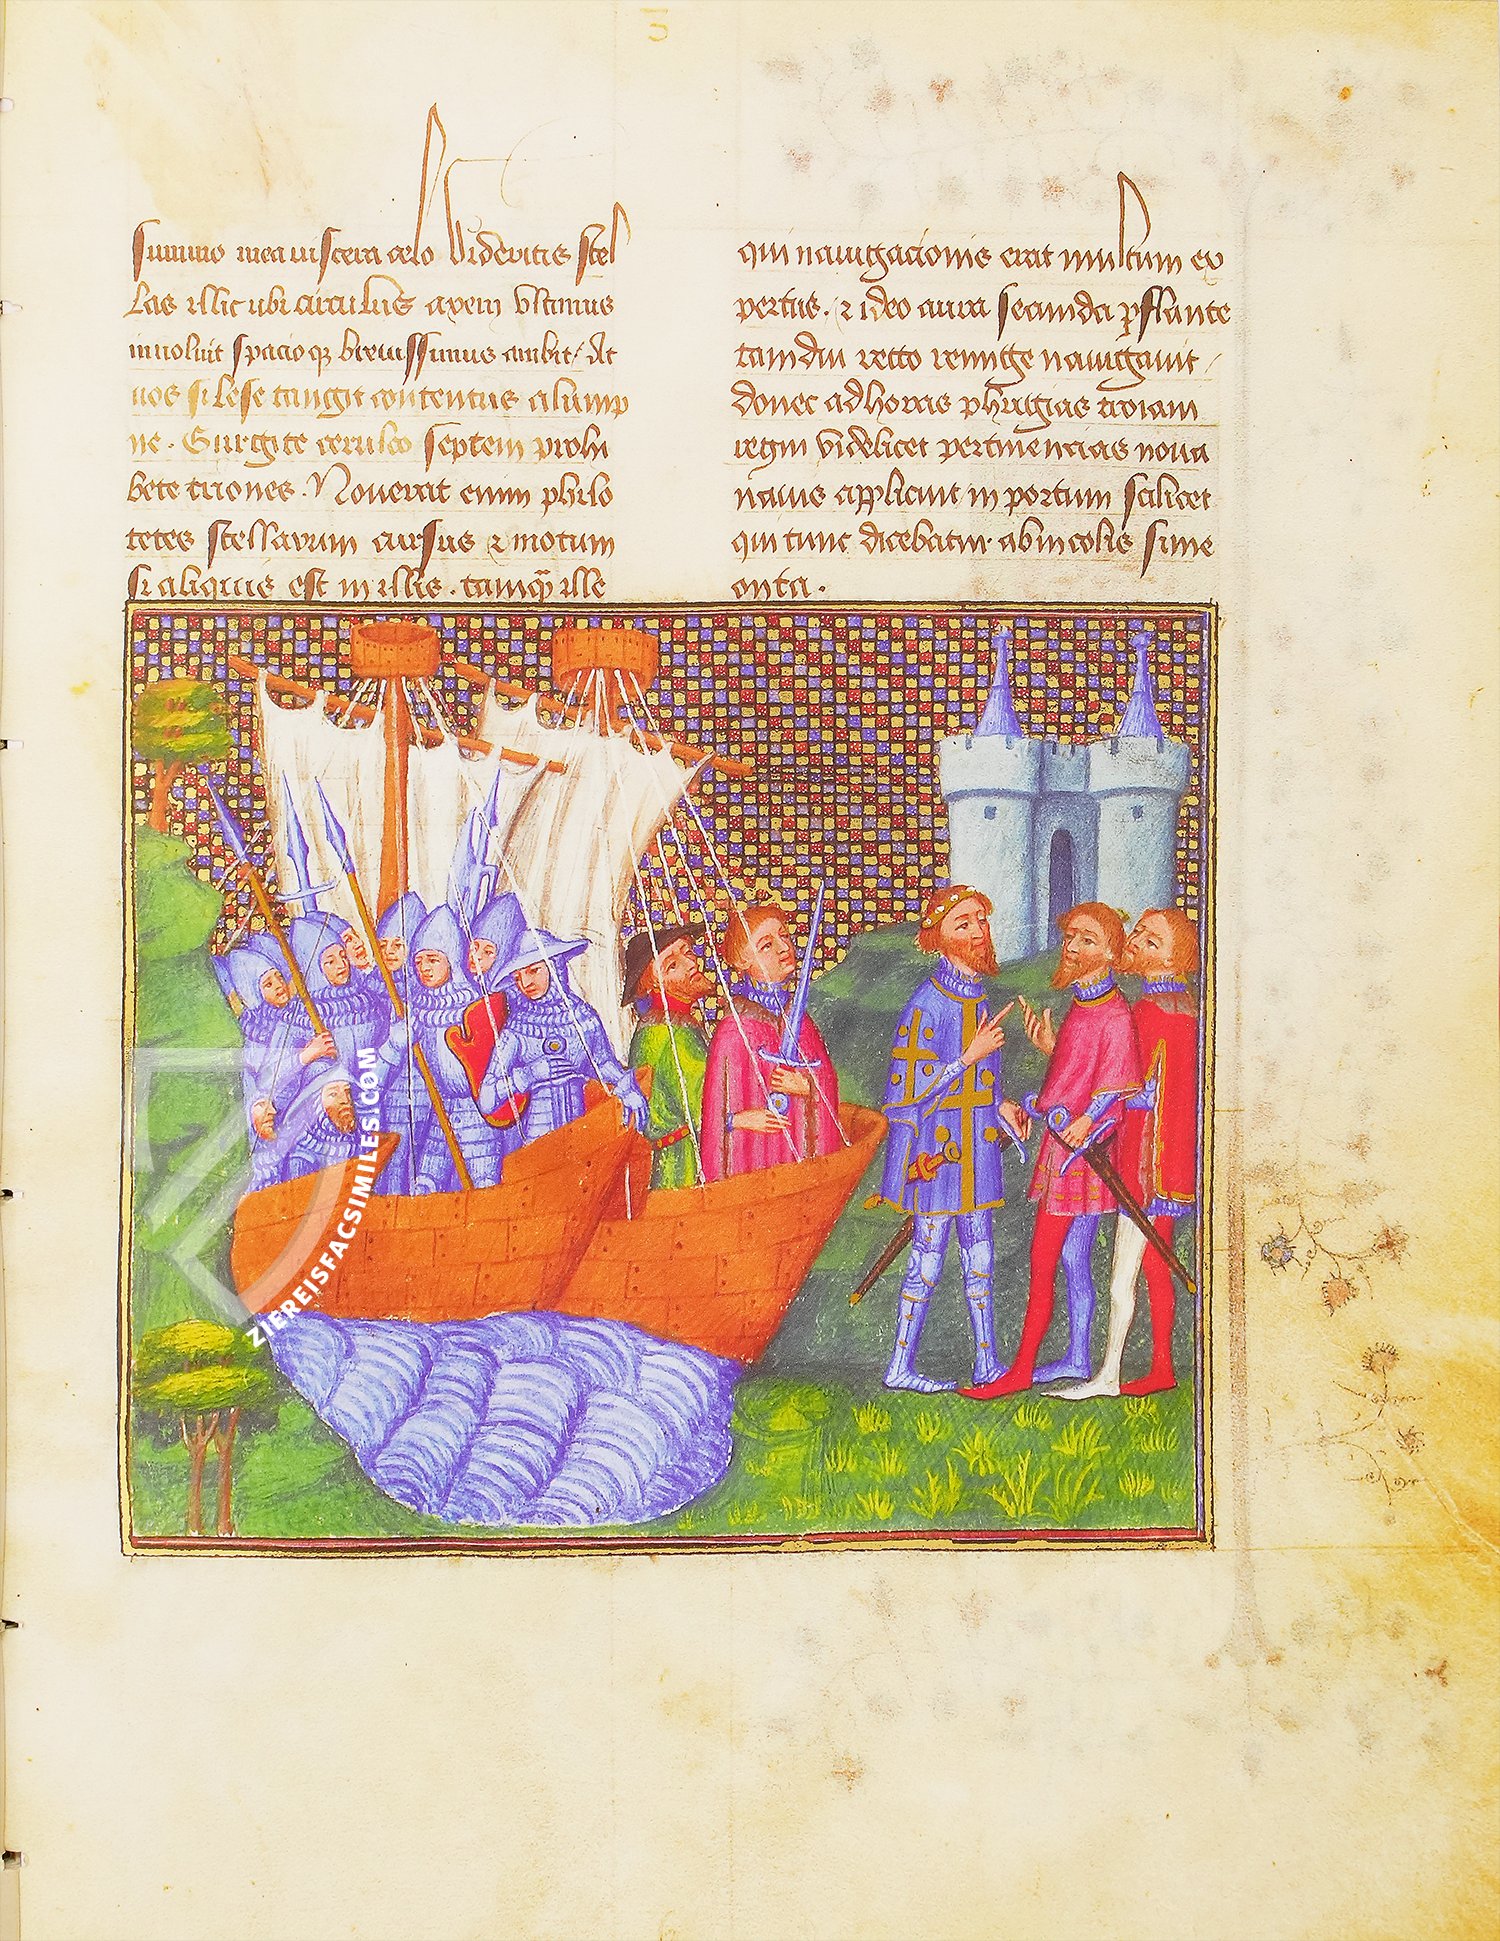 summo mea viscera celo Videritis stel
las illic ubi circulus axem vltimus
inuoluit spacioqz breuissimus ambit / At
uos si lese tangit contentus alump
ne . Gurgite ceruleo septem prohi
bete triones . Nouerat enim philo
tetes stellarum cursus ⁊ motum
si aliquis est in illis . tamqᷓ ille
qui nauigacionis erat multum ex
pertus . ⁊ ideo aura secunda ꝑflante
tamdiu recto remige nauigauit /
donec ad horas phrigias troiam
regni videlicet pertinencias noua
nauis applicuit in portum scilicet
qui tunc dicebatur ab incolis sime
onta .
ZIEREISFACSIMILES.COM